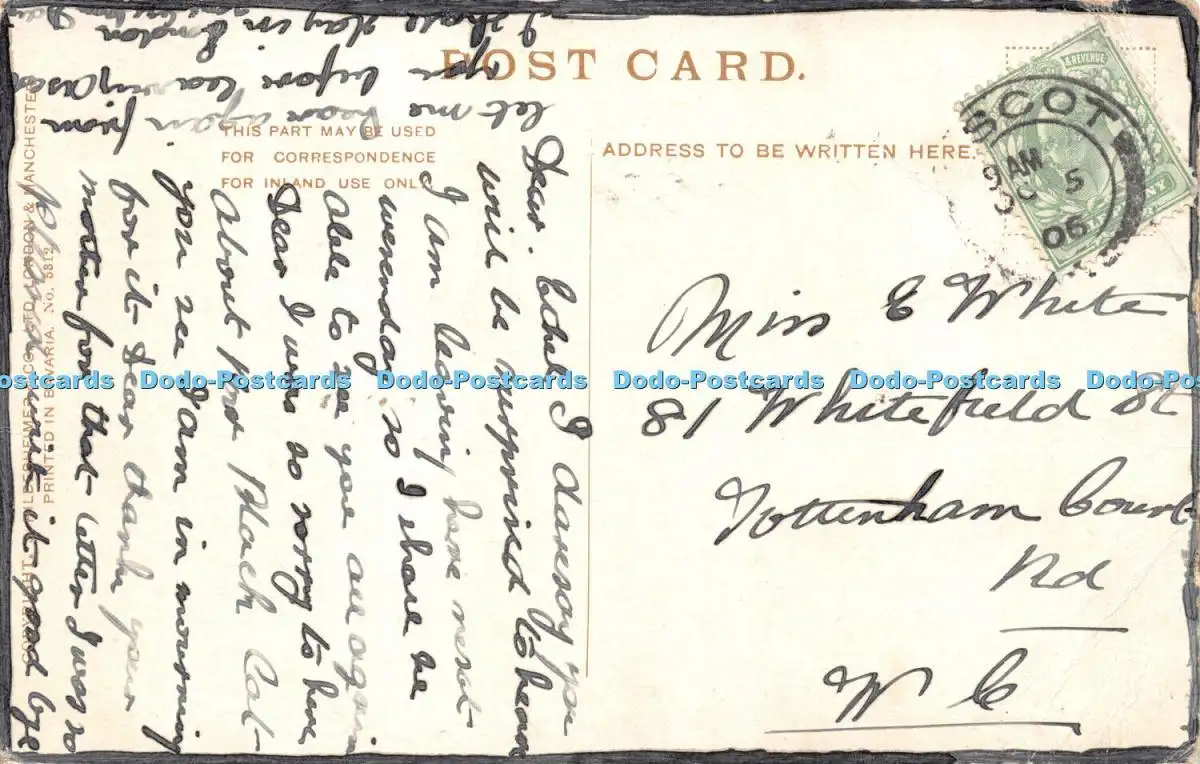 POST CARD.
THIS PART MAY BE USED
FOR CORRESPONDENCE
FOR INLAND USE ONLY
ADDRESS TO BE WRITTEN HERE.
& REVENUE
ASCOT
9 AM
OC 5
06
Miss E White
81 Whitefield St
Tottenham Court
Rd
W C
Dear. Ethel I daresay you
will be surprised to hear
I am leaving here next
wensday so I shall be
able to see you all again
Dear I was so sorry to hear
about poor Black Cat
you see I am in mourning
for it Dear thank your
mother for that letter I was so
pleased with it good bye
let me hear again from
you before leaving Ascot
I shall stay in London
COPYRIGHT. HILDESHEIMER & CO. LTD. LONDON & MANCHESTER
PRINTED IN BAVARIA. No. 5312
Dodo-Postcards Dodo-Postcards Dodo-Postcards Dodo-Postcards Dodo-Postcards Dodo-Postcards